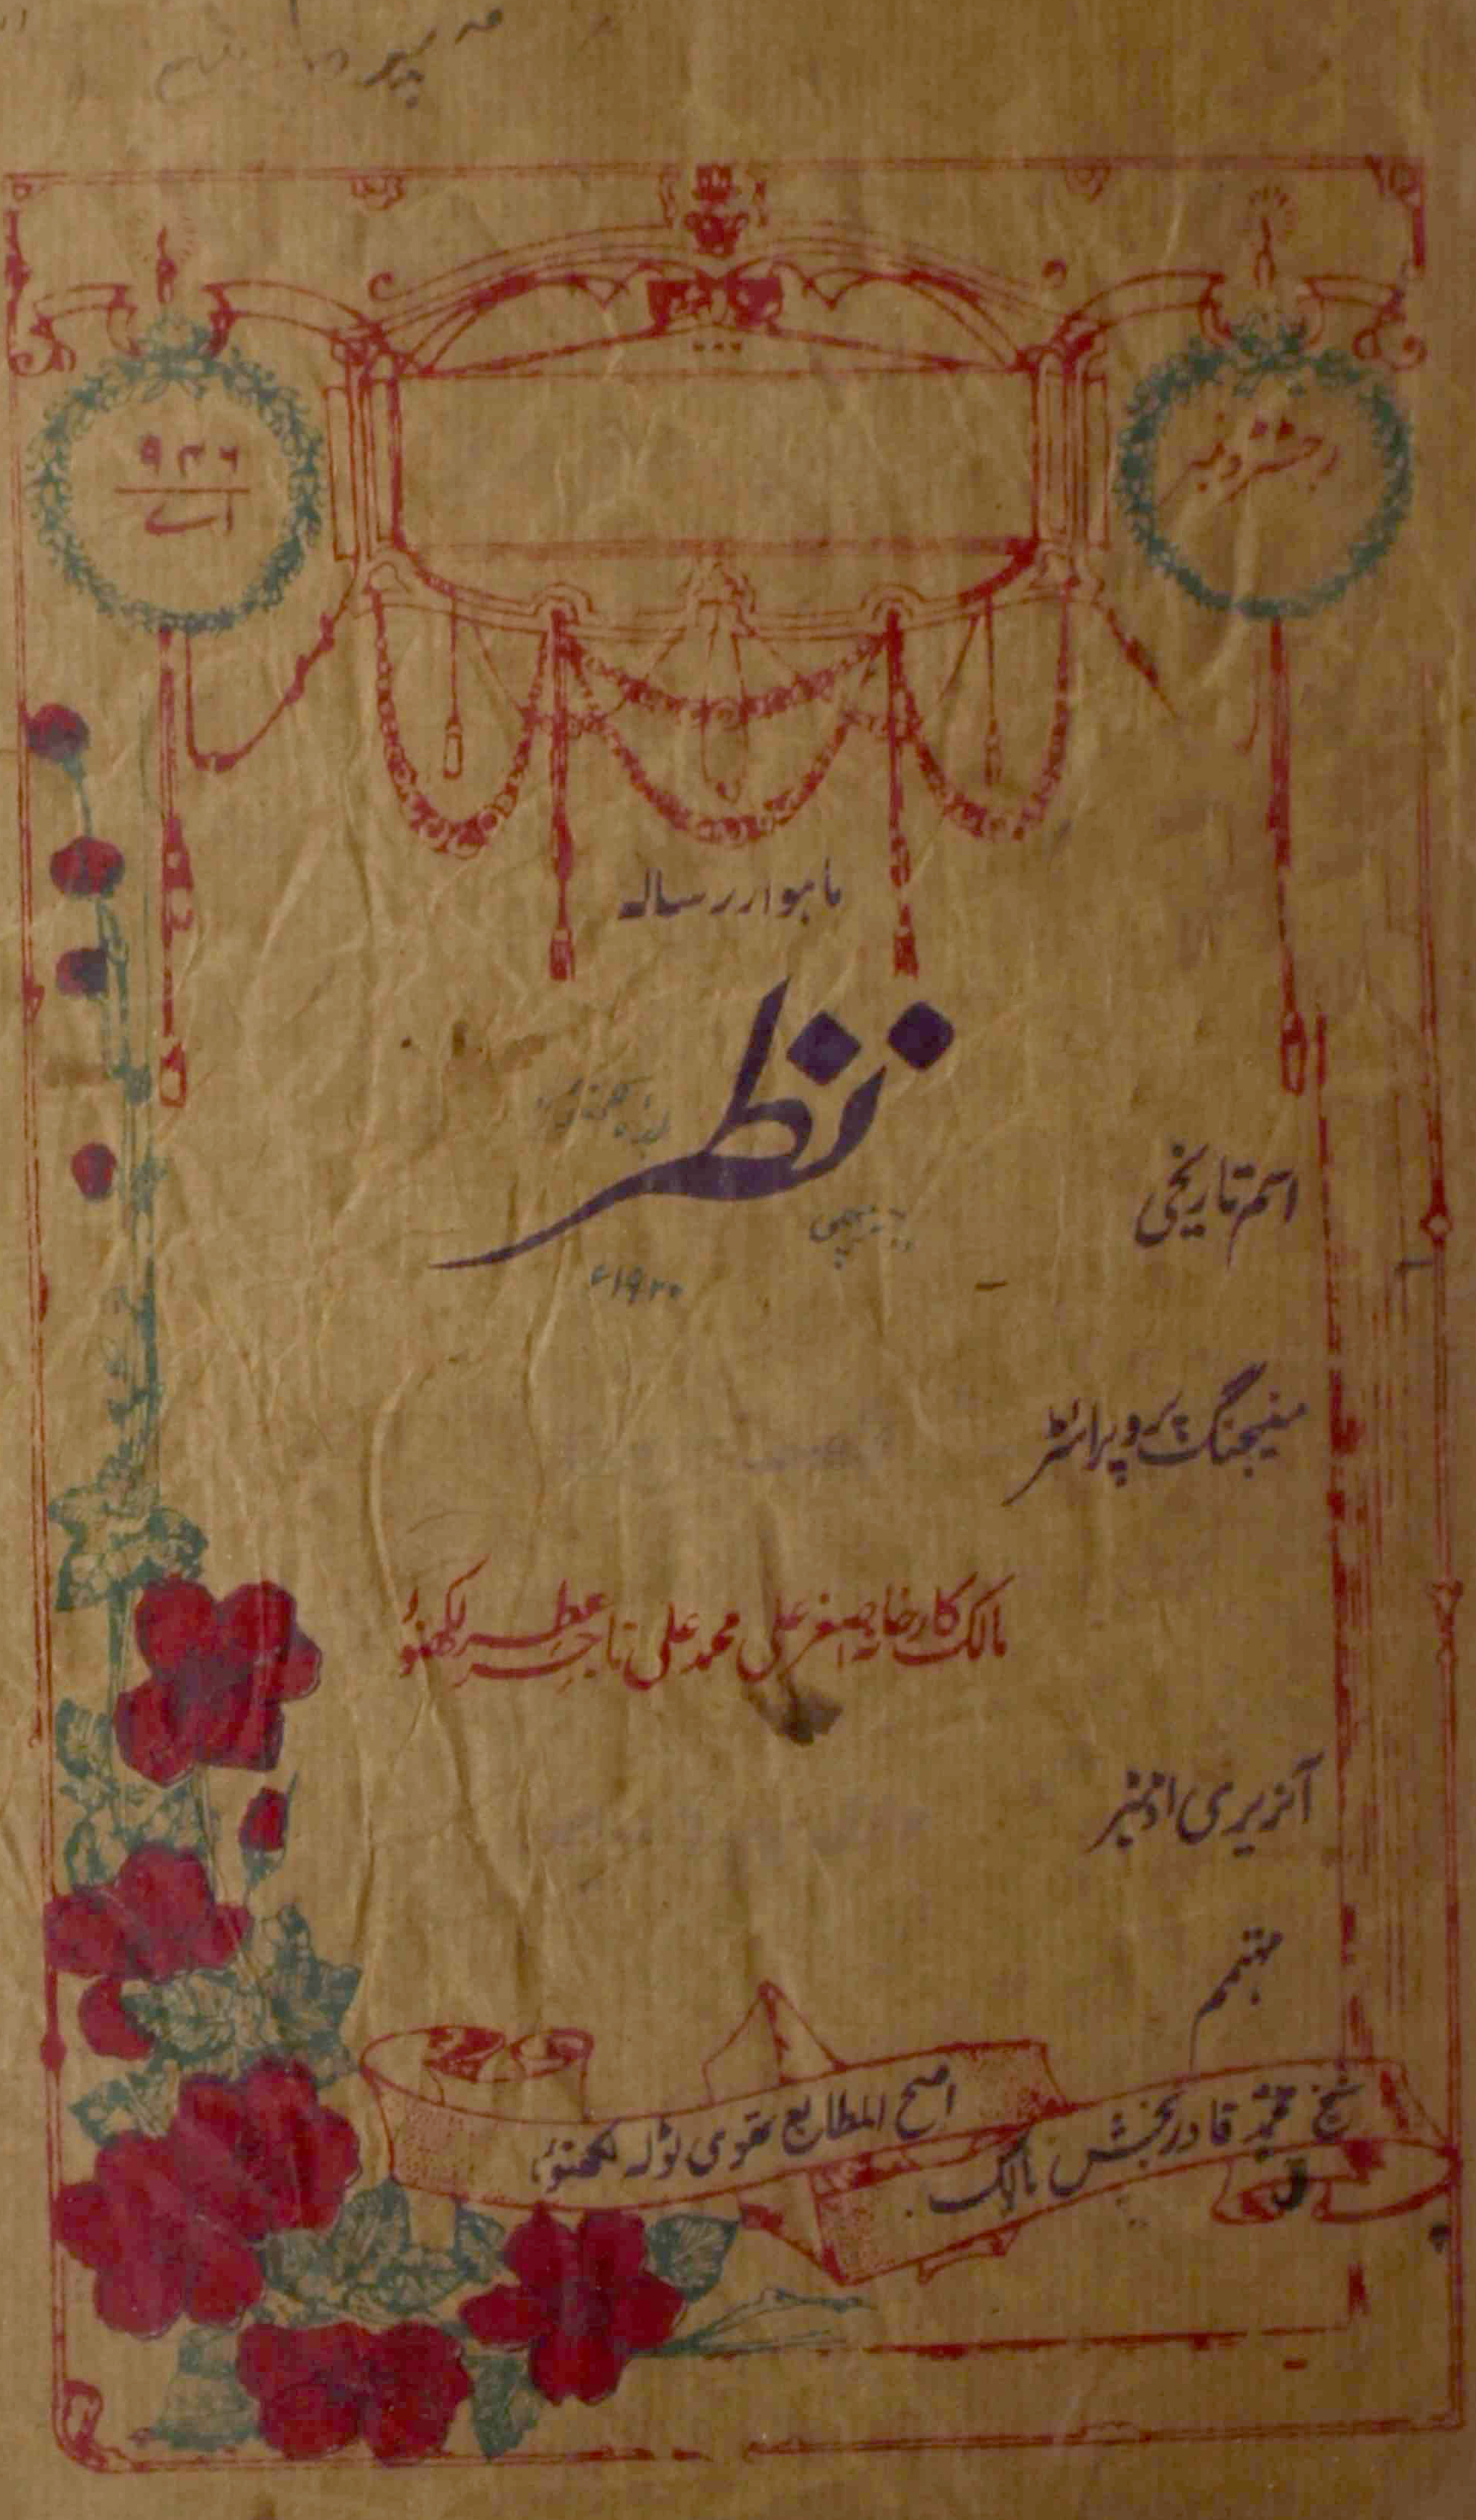 رجسٹرڈ نمبر
۹۳۶
اے
ماہوار رسالہ
نظر
۱۹۲۰ء
اسم تاریخی
منیجنگ پروپرائٹر
مالک کارخانہ اصغر علی محمد علی تاجر عطر لکھنؤ
آنریری اڈیٹر
مہتمم
شیخ محمد قادر بخش مالک
اصح المطابع نقوی ٹولہ لکھنؤ